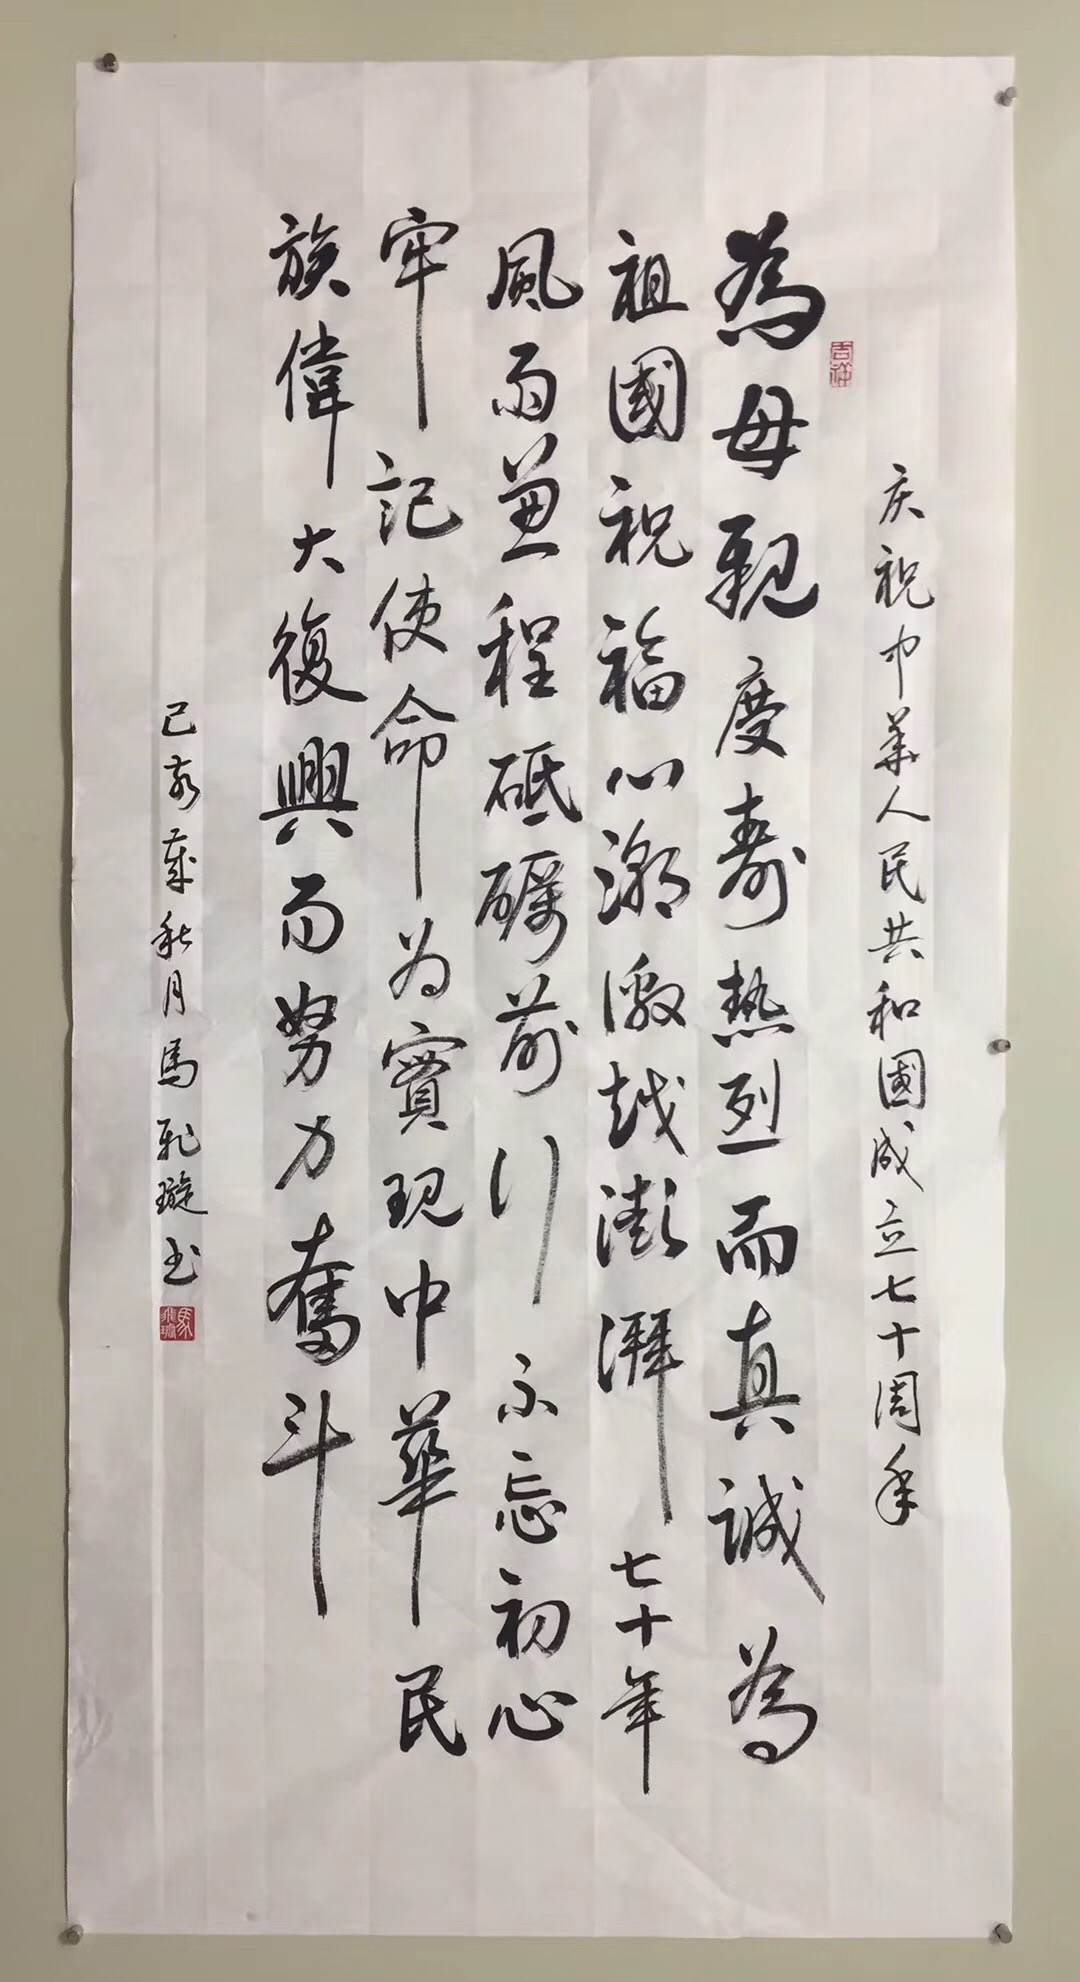 庆祝中華人民共和國成立七十周年
吉祥
為母親慶壽熱烈而真誠為
祖國祝福心潮激越澎湃七十年
風雨兼程砥礪前行不忘初心
牢記使命为實現中華民
族偉大復興而努力奮斗
己亥歲秋月馬 璇书